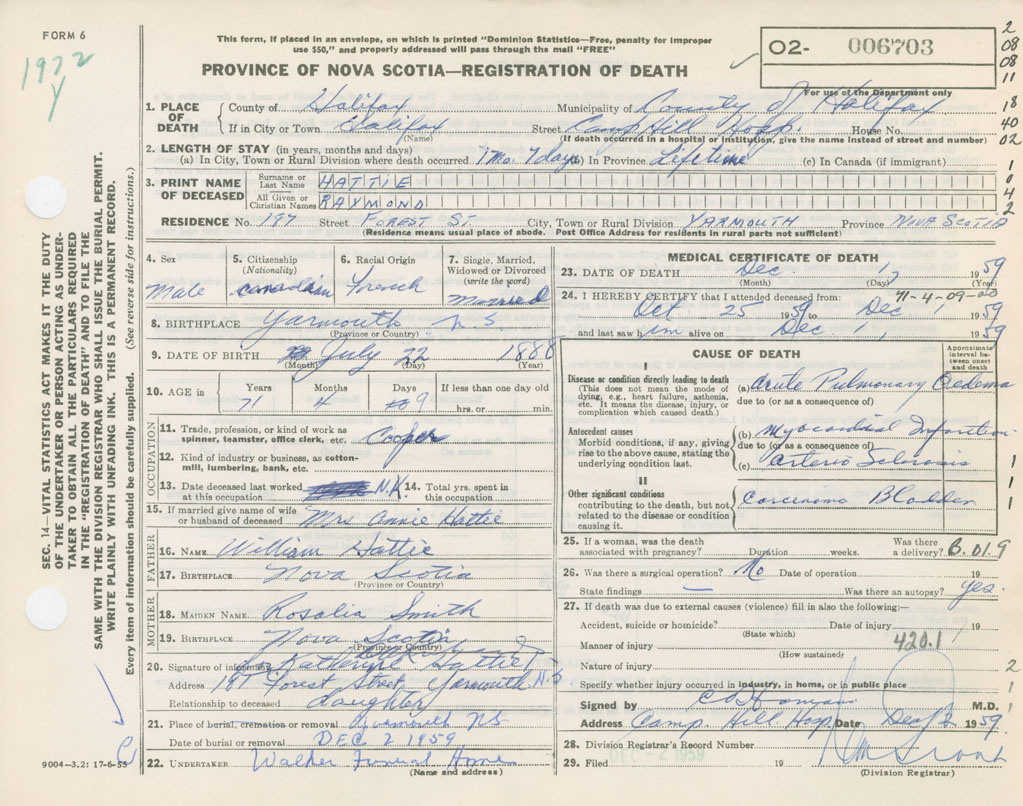 FORM 6
1972
Y
This form, if placed in an envelope, on which is printed "Dominion Statistics—Free, penalty for improper
use $50," and properly addressed will pass through the mail "FREE"
PROVINCE OF NOVA SCOTIA—REGISTRATION OF DEATH
O2- 006703
For use of the Department only
2
08
08
11
18
40
02
1
0
4
2
1. PLACE OF DEATH
County of Halifax Municipality of County of Halifax
If in City or Town Halifax Street Camp Hill Hosp. House No.
(Name) (If death occurred in a hospital or institution, give the name instead of street and number)
2. LENGTH OF STAY (in years, months and days)
(a) In City, Town or Rural Division where death occurred 1 Mo. 7 days (b) In Province Lifetime (c) In Canada (if immigrant)
3. PRINT NAME OF DECEASED
Surname or Last Name HATTIE
All Given or Christian Names RAYMOND
RESIDENCE No. 197 Street FOREST ST. City, Town or Rural Division YARMOUTH Province NOVA SCOTIA
(Residence means usual place of abode. Post Office Address for residents in rural parts not sufficient)
4. Sex Male
5. Citizenship (Nationality) Canadian
6. Racial Origin French
7. Single, Married, Widowed or Divorced (write the word) Married
8. BIRTHPLACE Yarmouth N S
(Province or Country)
9. DATE OF BIRTH July 22 1888
(Month) (Day) (Year)
10. AGE in Years Months Days If less than one day old
71 4 9 hrs. or min.
OCCUPATION
11. Trade, profession, or kind of work as spinner, teamster, office clerk, etc. Cooper
12. Kind of industry or business, as cotton-mill, lumbering, bank, etc.
13. Date deceased last worked at this occupation N.K. 14. Total yrs. spent in this occupation
15. If married give name of wife or husband of deceased Mrs Annie Hattie
FATHER
16. NAME William Hattie
17. BIRTHPLACE Nova Scotia
(Province or Country)
MOTHER
18. MAIDEN NAME Rosalia Smith
19. BIRTHPLACE Nova Scotia
(Province or Country)
20. Signature of informant Katherine Hattie
Address 197 Forest Street Yarmouth N.S
Relationship to deceased daughter
21. Place of burial, cremation or removal Yarmouth NS
Date of burial or removal DEC 2 1959
22. UNDERTAKER Walker Funeral Home
(Name and address)
9004—3.2: 17-6-55
MEDICAL CERTIFICATE OF DEATH
23. DATE OF DEATH Dec 1, 1959
(Month) (Day) (Year)
71-4-09-00
24. I HEREBY CERTIFY that I attended deceased from:
Oct. 25 1959 to Dec 1 1959
and last saw him alive on Dec 1, 1959
CAUSE OF DEATH
Approximate interval between onset and death
I
Disease or condition directly leading to death
(This does not mean the mode of dying, e.g., heart failure, asthenia, etc. It means the disease, injury, or complication which caused death.)
(a) Acute Pulmonary Oedema
due to (or as a consequence of)
Antecedent causes
Morbid conditions, if any, giving rise to the above cause, stating the underlying condition last.
(b) Myocardial Infarction
due to (or as a consequence of)
(c) Arterio Sclerosis
II
Other significant conditions
contributing to the death, but not related to the disease or condition causing it.
Carcinoma Bladder
1
1
1
25. If a woman, was the death associated with pregnancy? Duration weeks. Was there a delivery? B. 01.9
26. Was there a surgical operation? No Date of operation 19
State findings — Was there an autopsy? yes.
27. If death was due to external causes (violence) fill in also the following:—
Accident, suicide or homicide? Date of injury 19
(State which)
Manner of injury 420.1
(How sustained)
Nature of injury
2
Specify whether injury occurred in industry, in home, or in public place
1
Signed by M.D.
1
Address Camp Hill Hosp. Date Dec 2 1959.
28. Division Registrar's Record Number
29. Filed DEC -2 1959 19
(Division Registrar)
SEC. 14—VITAL STATISTICS ACT MAKES IT THE DUTY
OF THE UNDERTAKER OR PERSON ACTING AS UNDER-
TAKER TO OBTAIN ALL THE PARTICULARS REQUIRED
IN THE "REGISTRATION OF DEATH" AND TO FILE THE
SAME WITH THE DIVISION REGISTRAR WHO SHALL ISSUE THE BURIAL PERMIT.
WRITE PLAINLY WITH UNFADING INK. THIS IS A PERMANENT RECORD.
Every item of information should be carefully supplied. (See reverse side for instructions.)